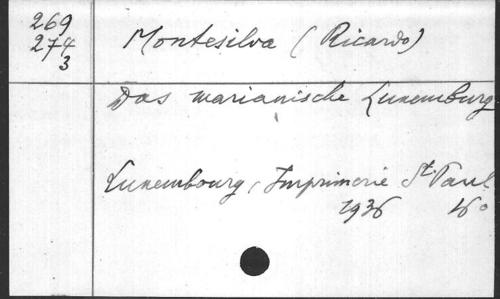 269
274
3
Montesilva (Ricardo)
Das marianische Luxemburg
Luxembourg, Imprimerie St Paul
1936 16°